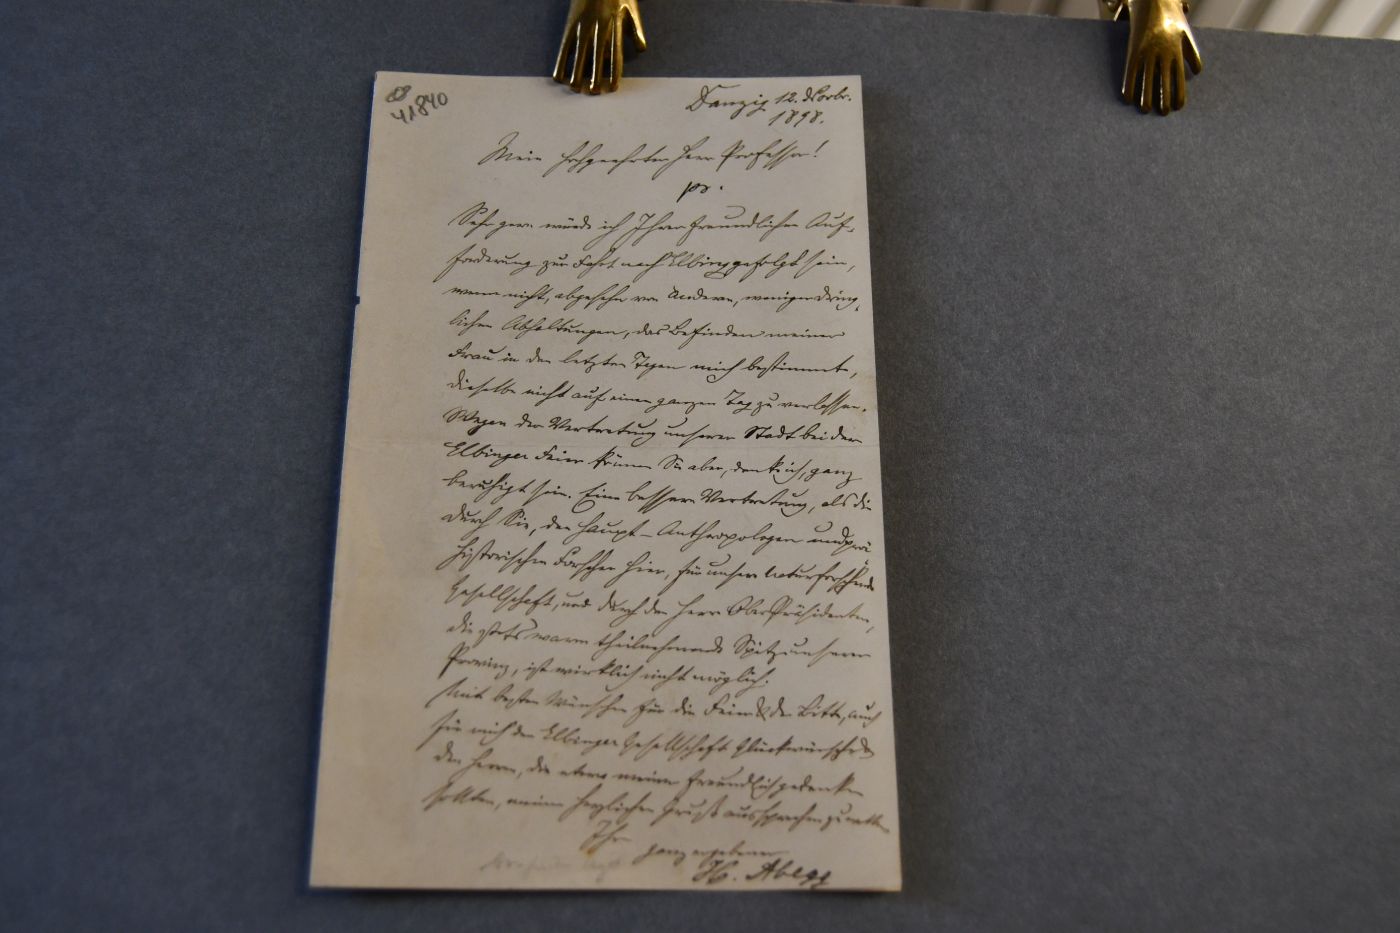 41840
Danzig 12. Novbr.
1898.
Mein hochgeehrter Herr Professor!
pr.
Sehr gern würde ich Ihrer freundlichen Auf-
forderung zur Fahrt nach Elbing gefolgt sein,
wenn nicht, abgesehn von anderen, weniger dring-
lichen Abhaltungen, das Befinden meiner
Frau in den letzten Tagen mich bestimmte,
dieselbe nicht auf einen ganzen Tag zu verlassen.
Wegen der Vertretung unserer Stadt bei der
Elbinger Feier können Sie aber, denke ich, ganz
beruhigt sein. Eine bessere Vertretung, als die
durch Sie, den Haupt-Anthropologen und prä-
historischen Forscher hier, für unsere Naturforschende
Gesellschaft, und durch den Herrn Oberpräsidenten,
die stets warm theilnehmende Spitze unserer
Provinz, ist wirklich nicht möglich.
Mit besten Wünschen für die Feier & der Bitte, auch
für mich der Elbinger Gesellschaft Glückwünsche &
den Herren, die etwa meiner freundlich gedenken
sollten, meinen herzlichen Gruß aussprechen zu wollen
Ihr
ganz ergebener
H. Abegg